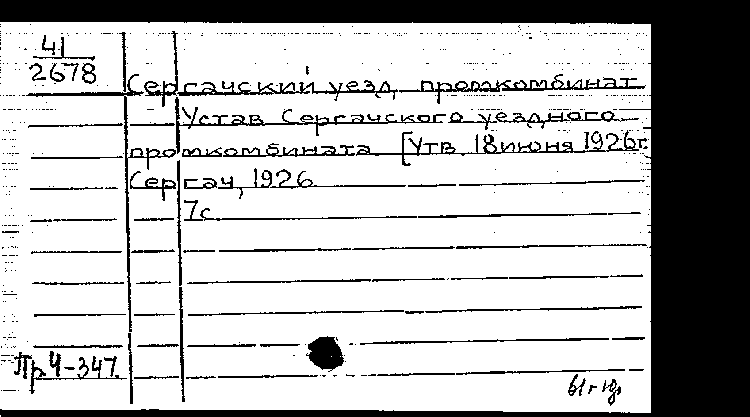 41
2678
Сергачский уезд. промкомбинат
Устав Сергачского уездного
промкомбината. [Утв. 18 июня 1926г.
Сергач, 1926.
7с.
Пр 4-347.